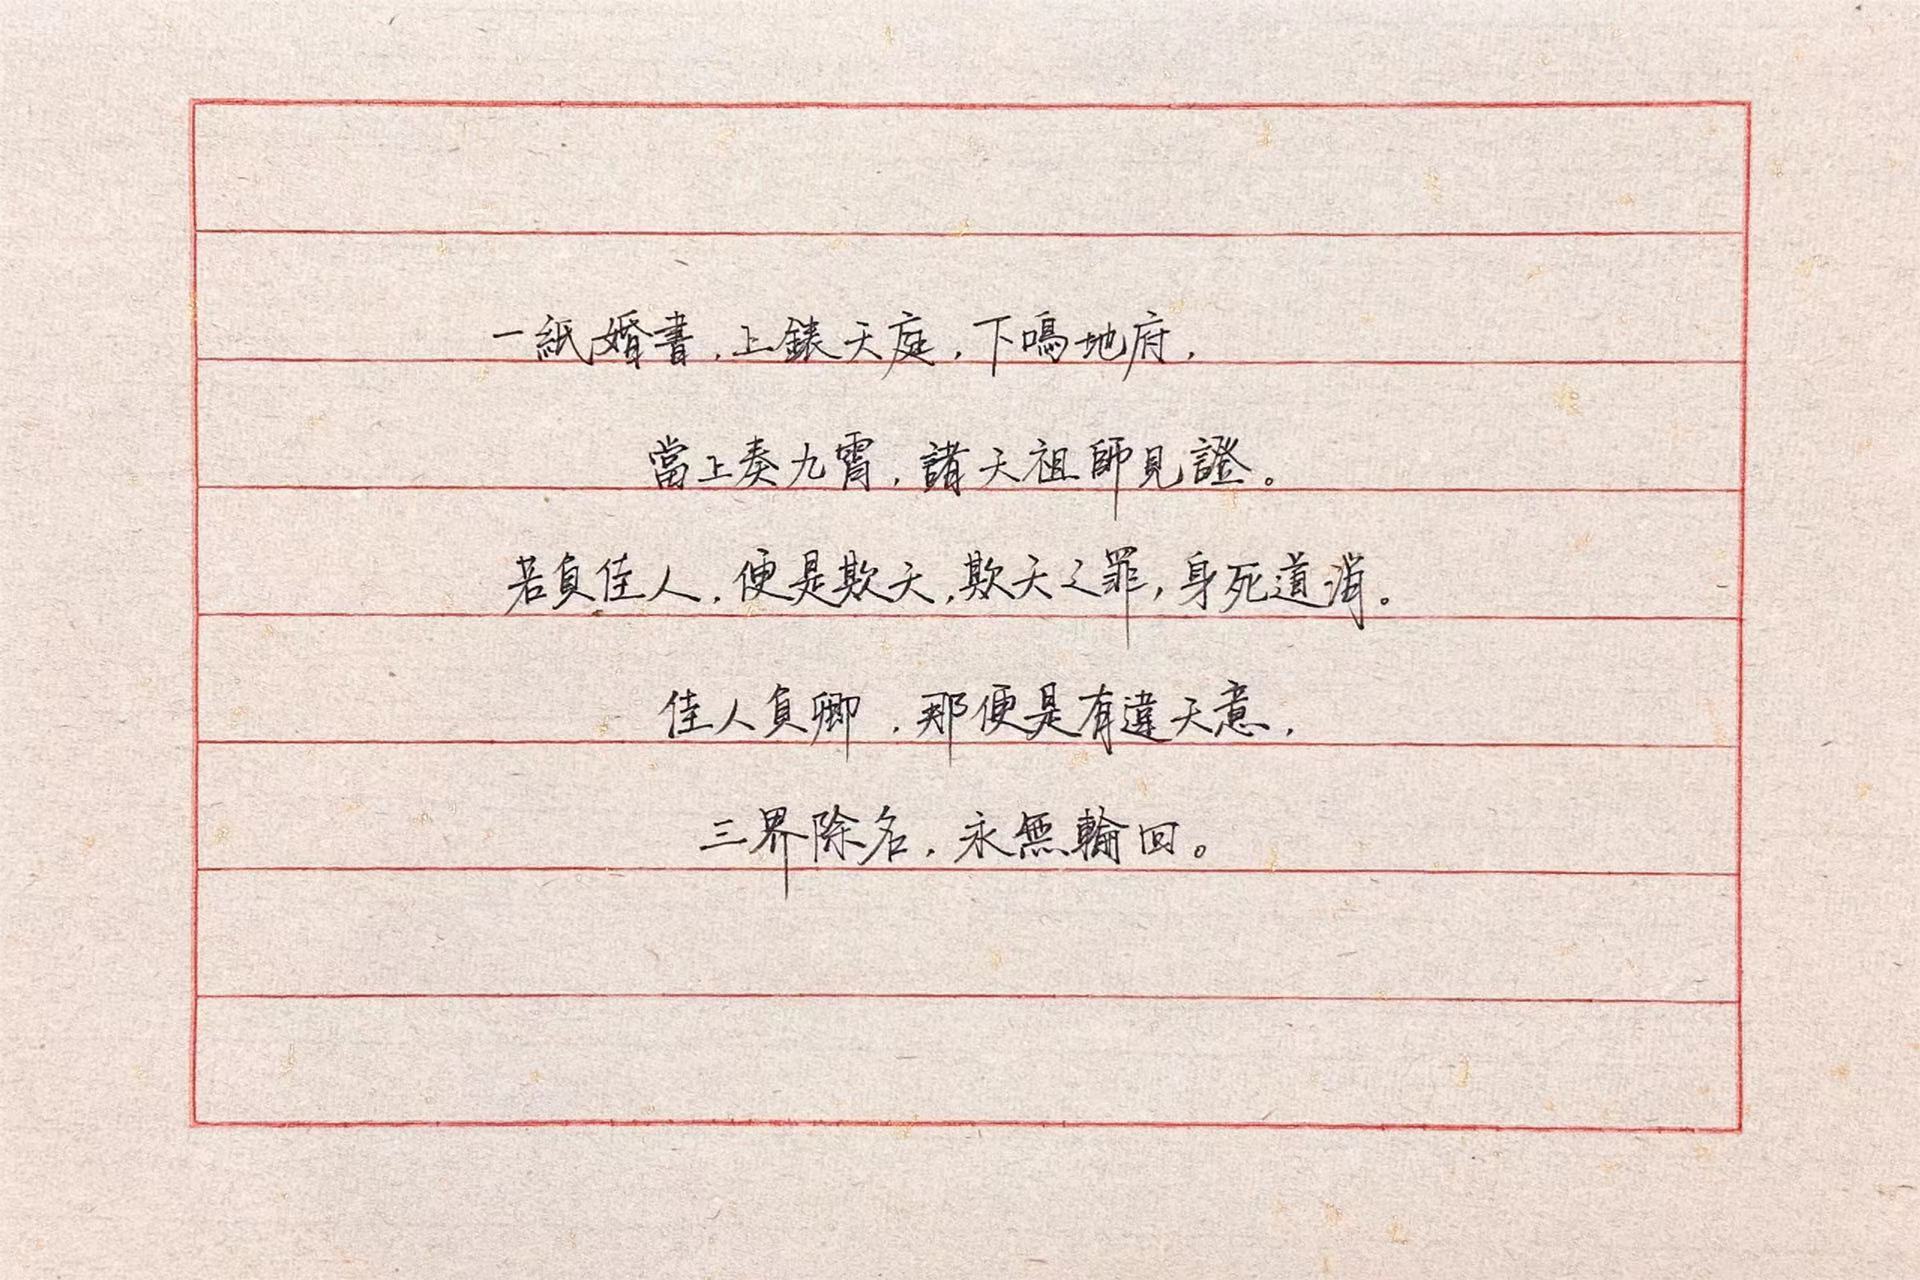 一紙婚書，上錶天庭，下鳴地府，
當上奏九霄，諸天祖師見證。
若負佳人，便是欺天，欺天之罪，身死道消。
佳人負卿，那便是有違天意，
三界除名，永無輪回。